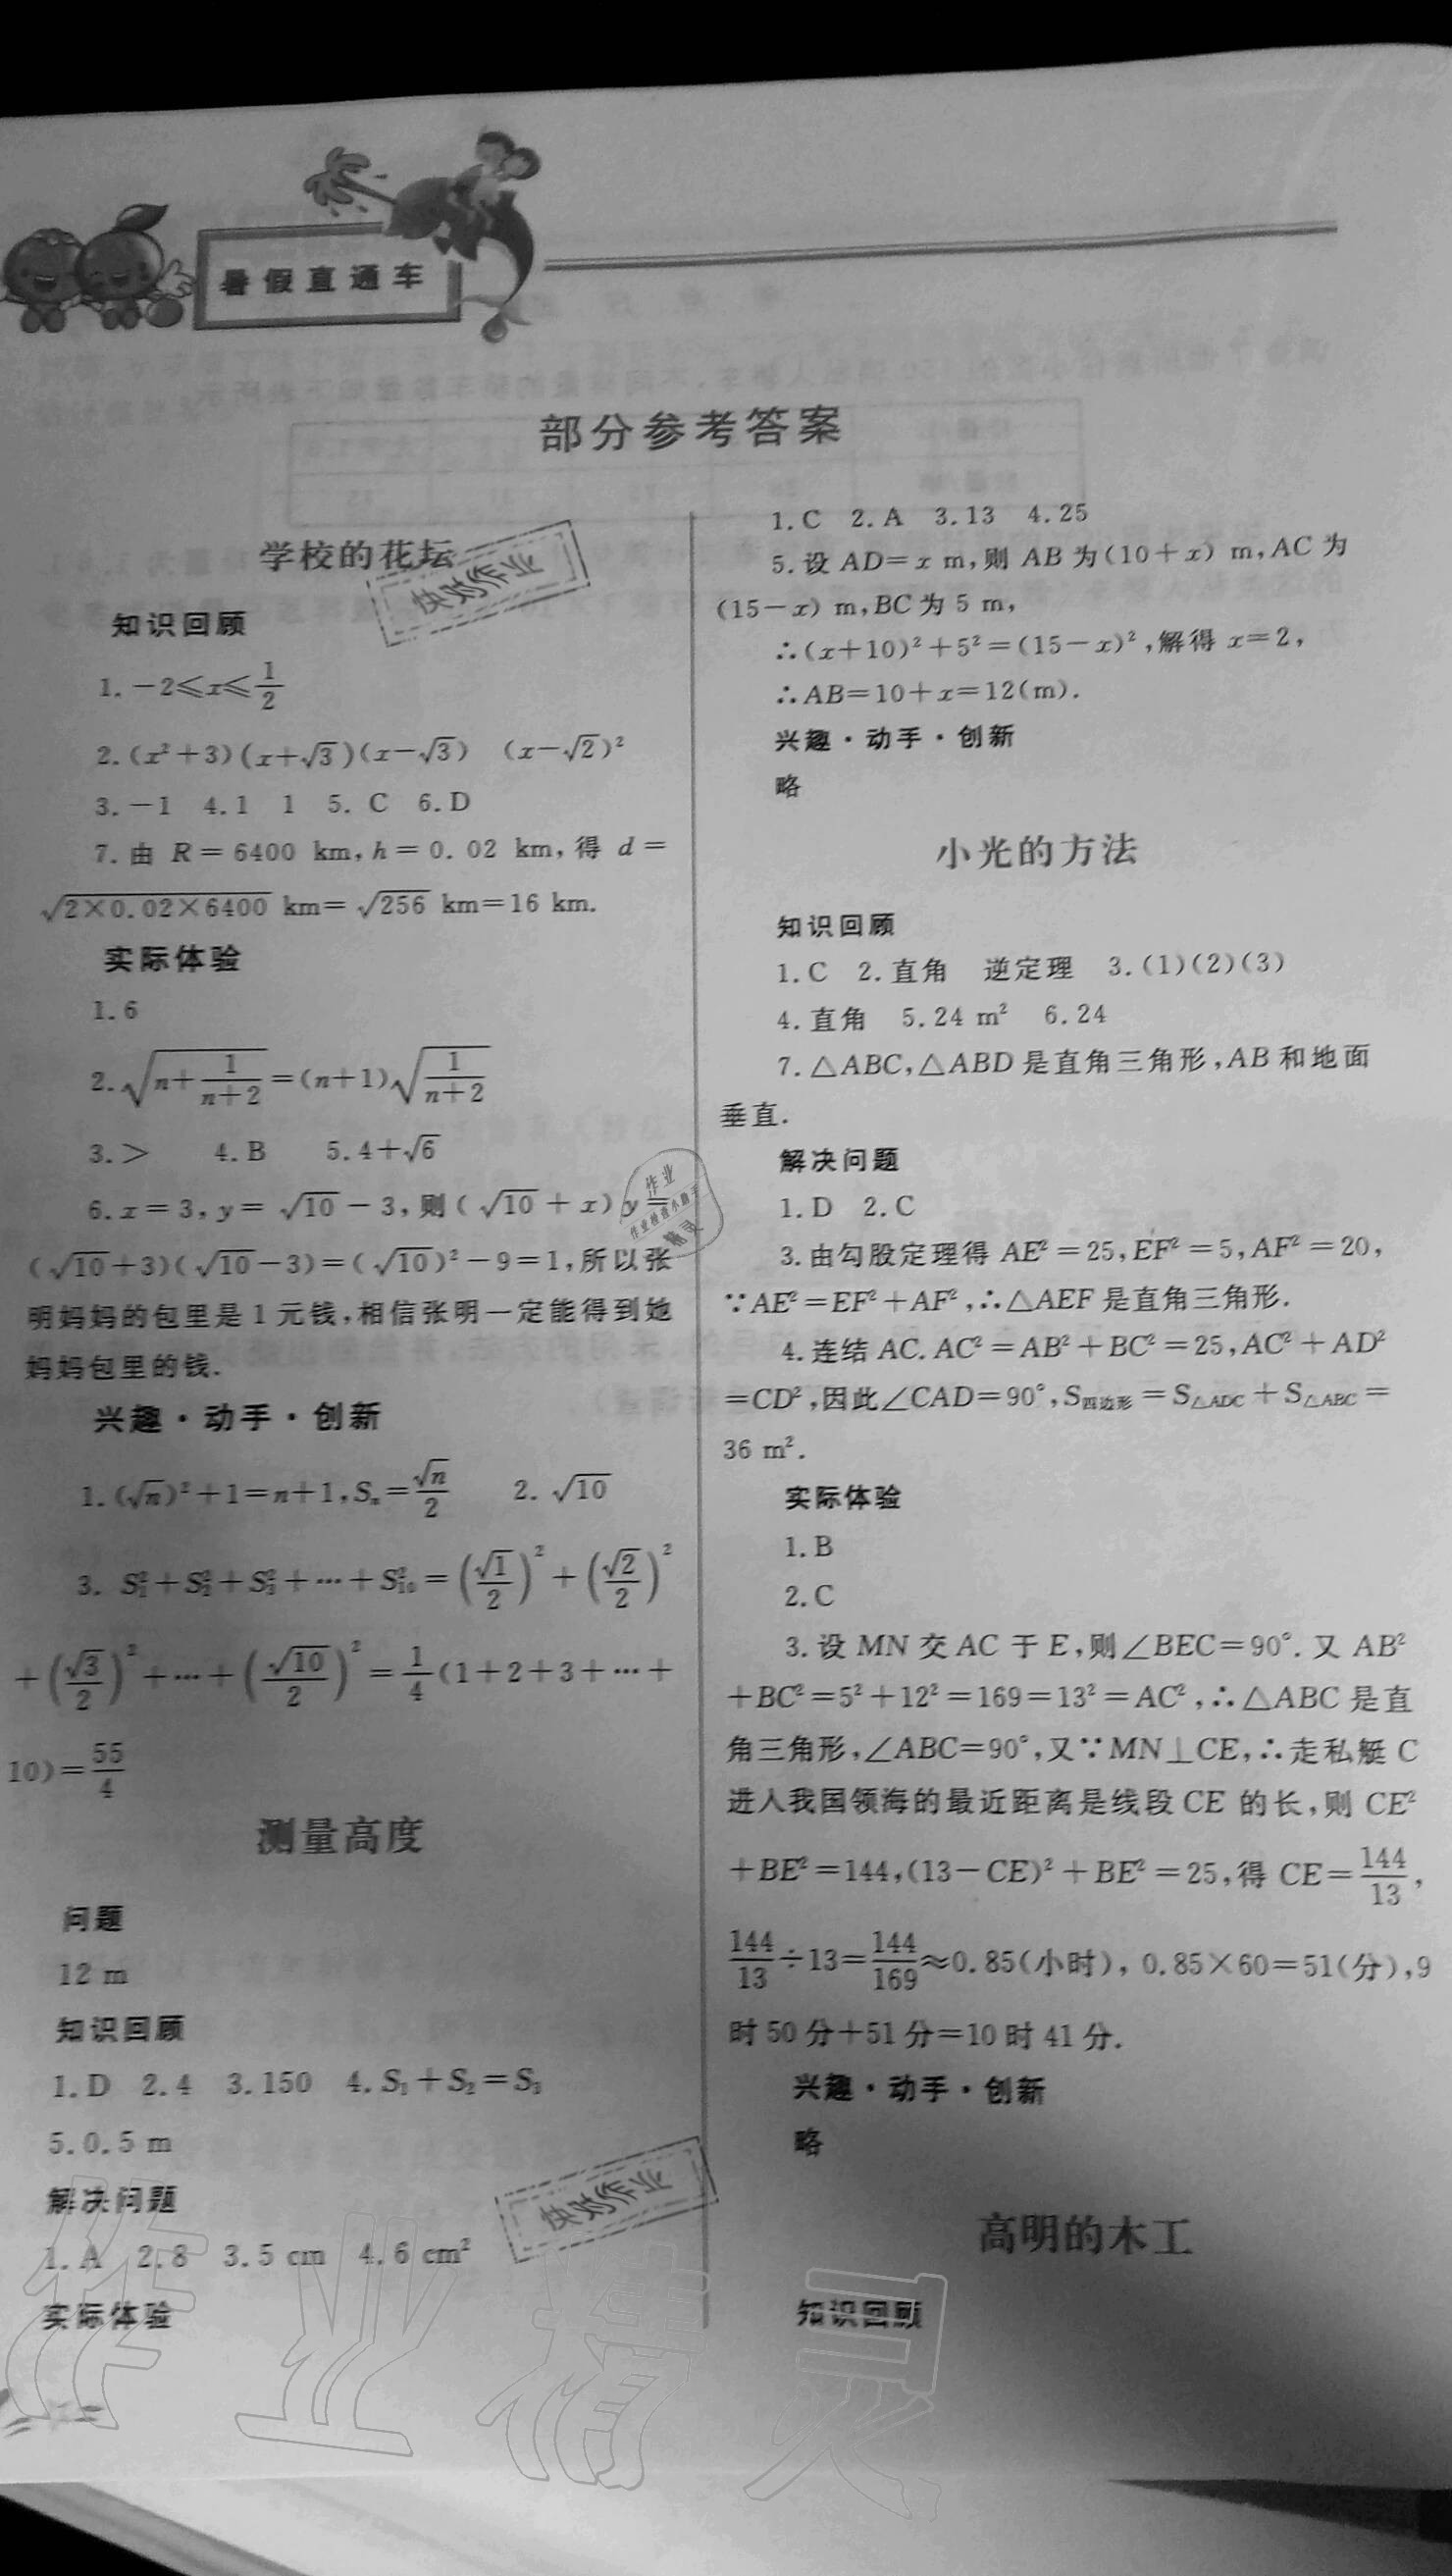 暑假直通车
部分参考答案
学校的花坛
知识回顾
1.-2≤x≤1/2
2.(x²+3)(x+√3)(x-√3) (x-√2)²
3.-1 4.1 1 5.C 6.D
7.由 R=6400 km,h=0.02 km,得 d=
√(2×0.02×6400) km=√256 km=16 km.
实际体验
1.6
2.√(n+1/(n+2))=(n+1)√(1/(n+2))
3.> 4.B 5.4+√6
6.x=3,y=√10-3,则(√10+x)y=
(√10+3)(√10-3)=(√10)²-9=1,所以张
明妈妈的包里是1元钱,相信张明一定能得到她
妈妈包里的钱.
兴趣·动手·创新
1.(√n)²+1=n+1,Sₙ=√n/2 2.√10
3. S₁²+S₂²+S₃²+…+S₁₀²=(√1/2)²+(√2/2)²
+(√3/2)²+…+(√10/2)²=1/4(1+2+3+…+
10)=55/4
测量高度
问题
12 m
知识回顾
1.D 2.4 3.150 4.S₁+S₂=S₃
5.0.5 m
解决问题
1.A 2.8 3.5 cm 4.6 cm²
实际体验
1.C 2.A 3.13 4.25
5.设 AD=x m,则 AB 为(10+x) m,AC 为
(15-x) m,BC 为 5 m,
∴(x+10)²+5²=(15-x)²,解得 x=2,
∴AB=10+x=12(m).
兴趣·动手·创新
略
小光的方法
知识回顾
1.C 2.直角 逆定理 3.(1)(2)(3)
4.直角 5.24 m² 6.24
7.△ABC,△ABD 是直角三角形,AB 和地面
垂直.
解决问题
1.D 2.C
3.由勾股定理得 AE²=25,EF²=5,AF²=20,
∵AE²=EF²+AF²,∴△AEF 是直角三角形.
4.连结 AC.AC²=AB²+BC²=25,AC²+AD²
=CD²,因此∠CAD=90°,S四边形=S△ADC+S△ABC=
36 m².
实际体验
1.B
2.C
3.设 MN 交 AC 于 E,则∠BEC=90°.又 AB²
+BC²=5²+12²=169=13²=AC²,∴△ABC 是直
角三角形,∠ABC=90°,又∵MN⊥CE,∴走私艇 C
进入我国领海的最近距离是线段 CE 的长,则 CE²
+BE²=144,(13-CE)²+BE²=25,得 CE=144/13,
144/13÷13=144/169≈0.85(小时),0.85×60=51(分),9
时 50 分+51 分=10 时 41 分.
兴趣·动手·创新
略
高明的木工
知识回顾
快对作业
快对作业
作业
作业检查小助手
作业精灵